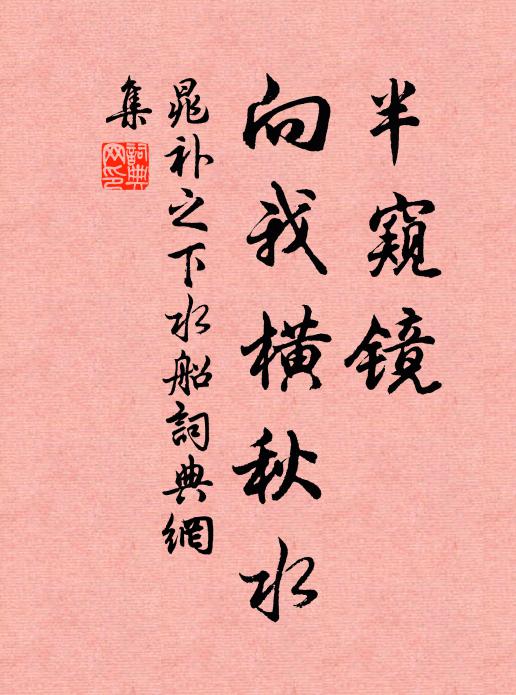 半窺镜
向我横秋水
晁补之下水船詞典網
集
詞典网印